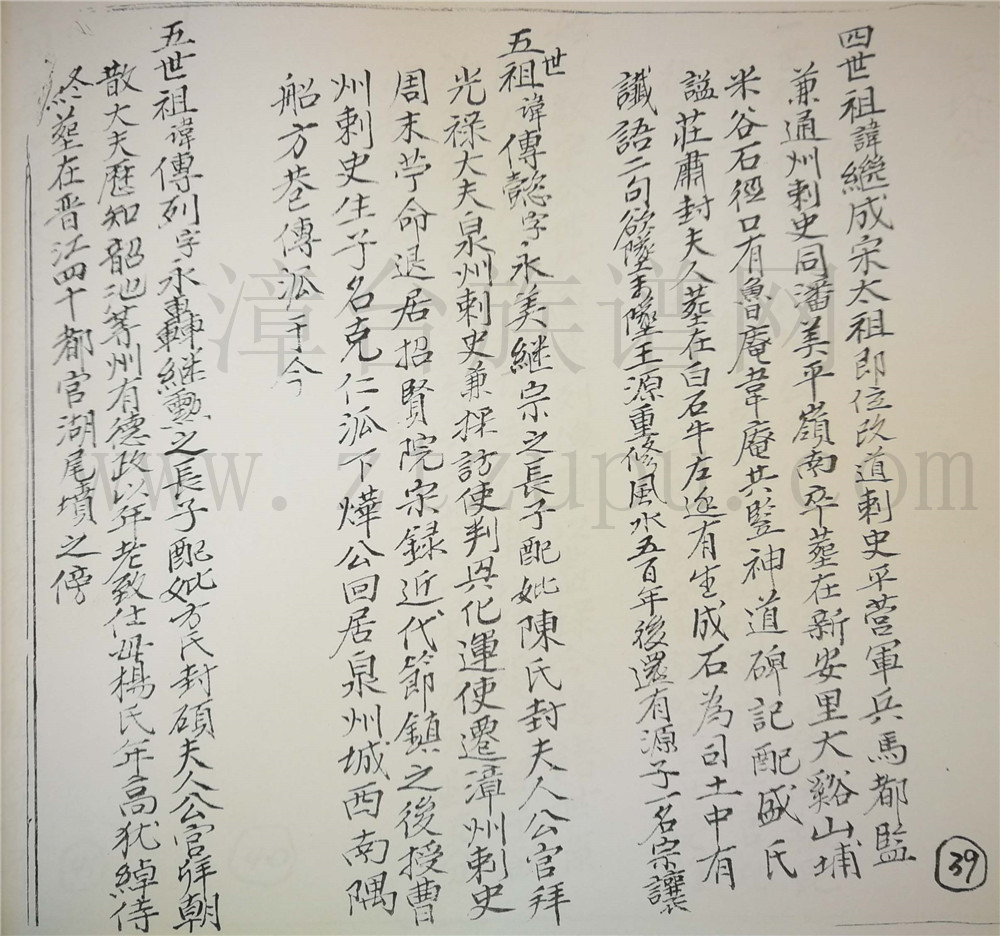 四世祖諱繼成宋太祖即位改道刺史平营軍兵馬都監
兼通州刺史同潘美平嶺南卒葬在新安里大谿山埔
米谷石徑口有魯庵韋庵共竪神道碑記配盛氏
謚莊肅封夫人葬在白石牛左邊有生成石為司土中有
讖語二句欲墜未墜王源重修風水五百年後還有源子一名宗讓
五世祖諱傳懿字永美継宗之長子配妣陳氏封夫人公官拜
光禄大夫泉州刺史兼採訪使判興化運使遷漳州刺史
周末苧命退居招賢院宗録近代節鎮之後授曹
州刺史生子名克仁泒下燁公回居泉州城西南隅
船方巷傳泒于今
五世祖諱傳列字永轟継勳之長子配妣方氏封碩夫人公官拜朝
散大夫歷知韶池等州有德政以年老致仕毋楊氏年高犹綽侍
終葬在晋江四十都官湖尾墳之傍
39
漳台族谱网
www.zzzupu.com